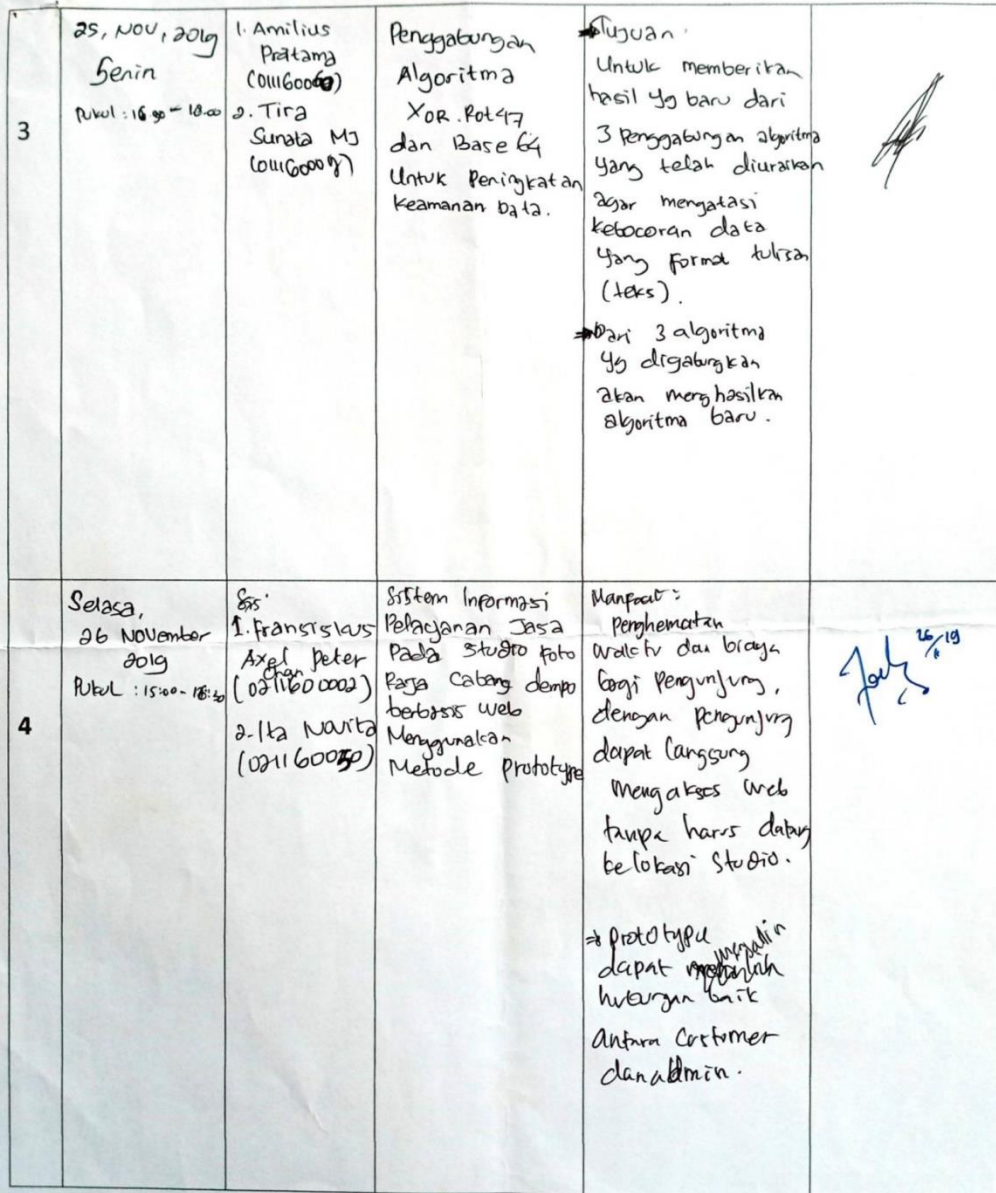 3
25, NOV, 2019
Senin
Pukul : 16.30 - 18.00
1. Amilius
Pratama
(011160060)
2. Tira
Sunata MJ
(011160009)
Penggabungan
Algoritma
XOR. Rot47
dan Base 64
Untuk Peningkatan
Keamanan Data.
Tujuan :
Untuk memberikan
hasil yg baru dari
3 Penggabungan algoritma
yang telah diuraikan
agar mengatasi
kebocoran data
yang format tulisan
(teks).
⇒ Dari 3 algoritma
yg digabungkan
akan menghasilkan
algoritma baru.
4
Selasa,
26 November
2019
Pukul : 15:00 - 16:30
1. Fransiskus
Axel Peter
Chan
(021160002)
2. Ita Novita
(021160050)
Sistem Informasi
Pelayanan Jasa
Pada Studio Foto
Raja Cabang dempo
berbasis web
Menggunakan
Metode Prototype
Manfaat :
Penghematan
waktu dan biaya
bagi Pengunjung,
dengan Pengunjung
dapat langsung
mengakses web
tanpa harus datang
ke lokasi Studio.
⇒ Prototype
dapat menjalin
hubungan baik
antara Customer
dan admin.